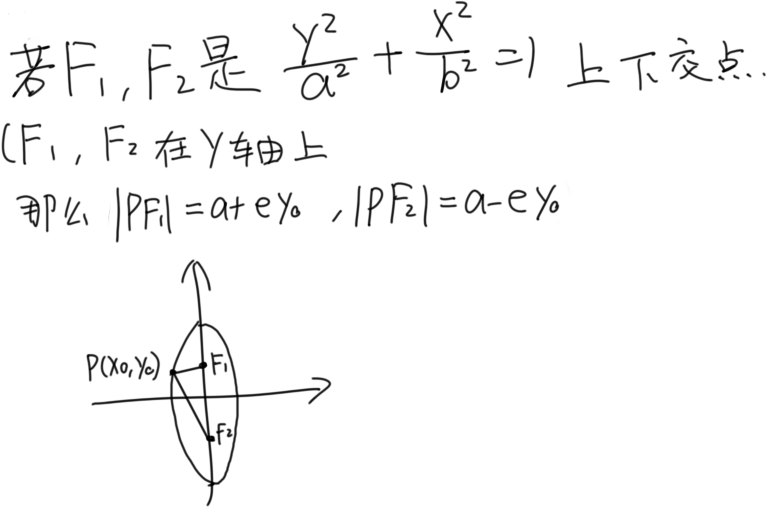 若F₁,F₂是 y²/a² + x²/b² =1 上下交点..
(F₁, F₂ 在 y轴上
那么 |PF₁|=a+ey₀ ,|PF₂|=a-ey₀
P(x₀,y₀)
F₁
F₂